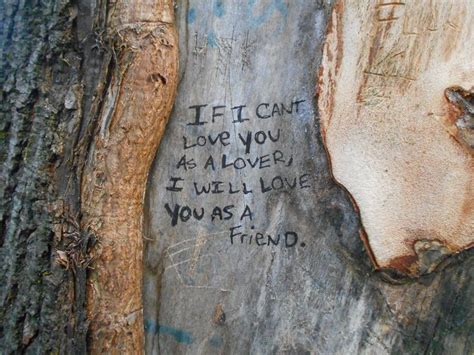 IF I CANT
LOVE YOU
AS A LOVER,
I WILL LOVE
YOU AS A
FRIEND.